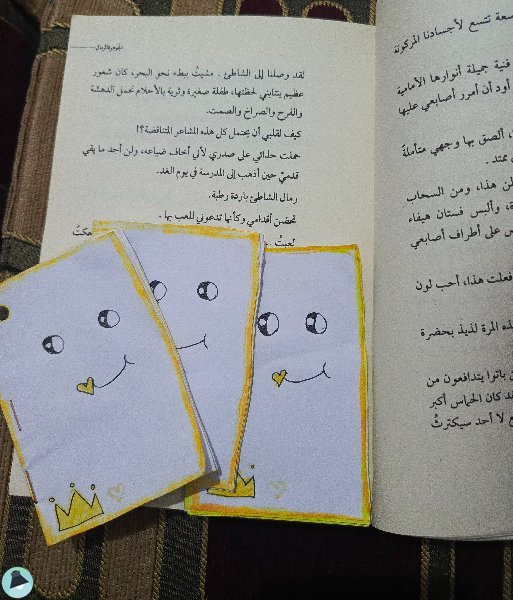 لقد وصلنا إلى الشاطئ . مشيتُ ببطء نحو البحر، كان شعور
عظيم ينتابني لحظتها، طفلة صغيرة وثرية بالأحلام تحمل الدهشة
والفرح والصراخ والصمت.
كيف لقلبي أن يحتمل كل هذه المشاعر المتناقضة؟!
حملت حذائي على صدري لأني أخاف ضياعه، ولن أجد ما يقي
قدميّ حين أذهب إلى المدرسة في يوم الغد.
رمال الشاطئ باردة رطبة.
تحضن أقدامي وكأنها تدعوني للعب بها .
لعبتُ
سعة تتسع لأجسادنا المركونة
فنية جميلة أنوارها الأمامية
أود أن أمرر أصابعي عليها
، ألصق بها وجهي متأملةً
ممتد .
لن هذا، ومن السحاب
، وألبس فستان هيفاء
س على أطراف أصابعي
فعلت هذا، أحب لون
ذه المرة لذيذ بحضرة
ن باتوا يتدافعون من
قد كان الحماس أكبر
ع لا أحد سيكترثُ